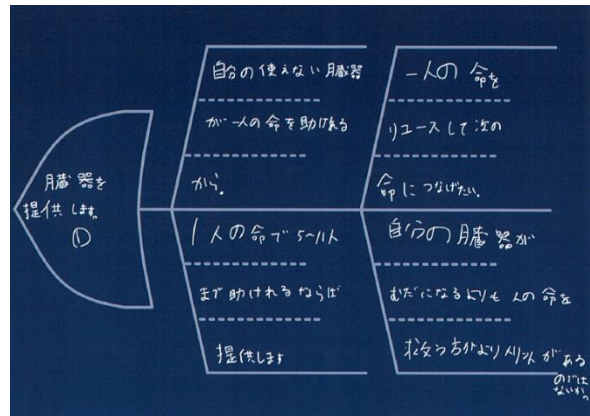 臓器を
提供します。
①
自分の使えない臓器
が一人の命を助けれる
から。
一人の命を
リユースして次の
命につなげたい。
1人の命で5〜11人
まで助けれるならば
提供します
自分の臓器が
むだになるよりも人の命を
救う方がよりメリットがある
のでは
ないか。